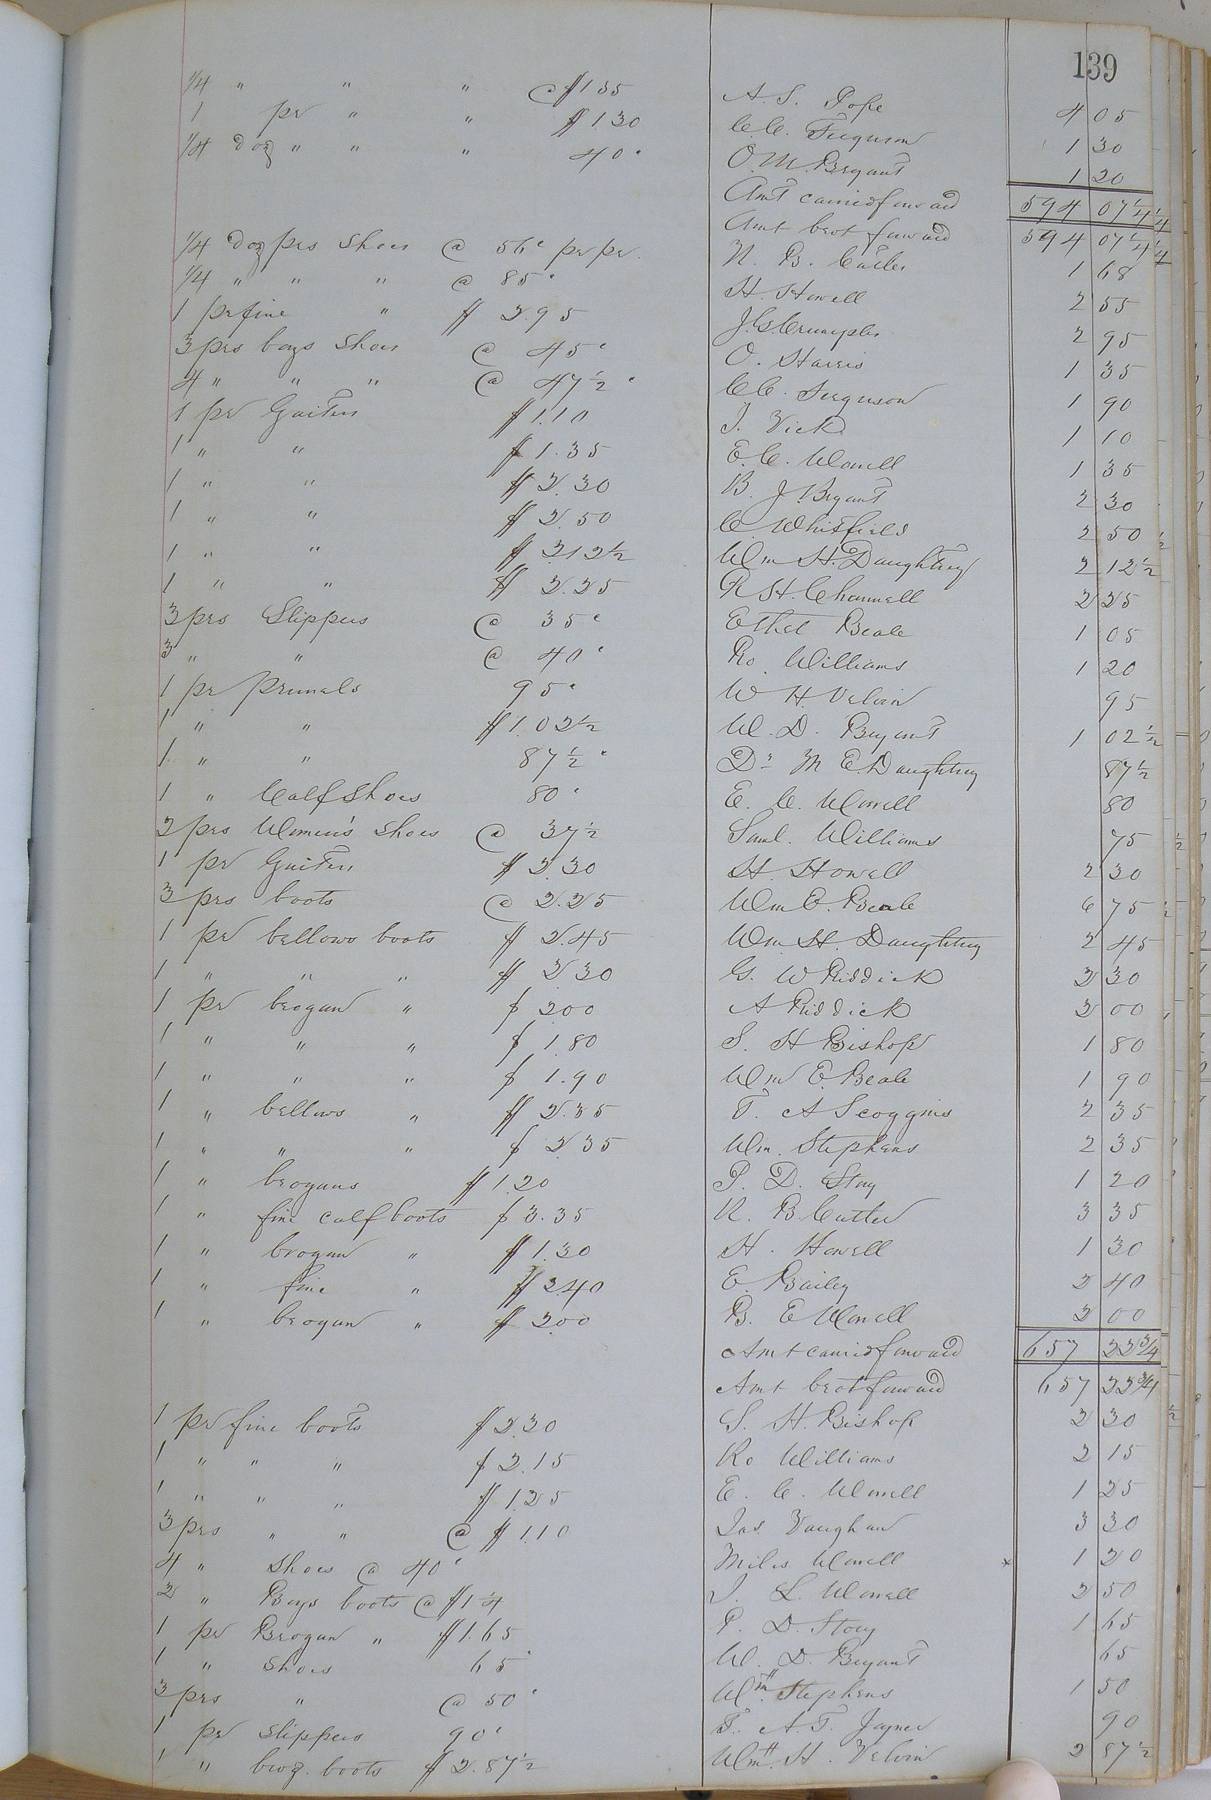 139
1/4 " " " @ $1 35 A. S. Pope 4 05
1 pr " " $1 30 C. C. Ferguson 1 30
1/4 doz " " " 40 c O. M. Bryant 1 20
Amt carried forward 594 07 1/4
Amt brot forward 594 07 1/4
1/4 doz prs Shoes @ 56 c pr pr. N. B. Cutler 1 68
1/4 " " " @ 85 c H. Howell 2 55
1 pr fine " $ 2.95 J. G. Crumpler 2 95
3 prs boys Shoes @ 45 c O. Harris 1 35
4 " " " @ 47 1/2 c C C. Ferguson 1 90
1 pr Gaiters $1.10 J. Vick 1 10
1 " " $1.35 E. C. Worrell 1 35
1 " " $2.30 B. J. Bryant 2 30
1 " " $2.50 C Whitfield 2 50
1 " " $2 12 1/2 Wm H. Daughtrey 2 12 1/2
1 " " $2.25 R H. Channell 2 25
3 prs Slippers @ 35 c Ethel Beale 1 05
3 " " @ 40 c Ro Williams 1 20
1 pr prunels 95 c W H. Velvin 95
1 " " $1.02 1/2 W. D. Bryant 1 02 1/2
1 " " 87 1/2 c Dr M E Daughtrey 87 1/2
1 " Calf Shoes 80 c E. C. Worrell 80
2 prs Women's Shoes @ 37 1/2 Saml. Williams 75
1 pr Gaiters $2.30 H. Howell 2 30
3 prs boots @ 2.25 Wm E. Beale 6 75
1 pr bellows boots $ 2.45 Wm H. Daughtrey 2 45
1 " " " $ 2 30 G. W Riddick 2 30
1 pr brogan " $ 2 00 A Riddick 2 00
1 " " " $ 1.80 S. H Bishop 1 80
1 " " " $ 1.90 Wm E. Beale 1 90
1 " bellows " $ 2.35 T. A Scoggins 2 35
1 " " " $ 2.35 Wm. Stephens 2 35
1 " brogans $1.20 P. D. Story 1 20
1 " fine calf boots $ 3.35 N. B Cutler 3 35
1 " brogan " $1.30 H. Howell 1 30
1 " fine " $2.40 E. Bailey 2 40
1 " brogan " $ 2.00 B. E Worrell 2 00
Amt carried forward 657 22 3/4
Amt brot forward 657 22 3/4
1 pr fine boots $2.30 S. H. Bishop 2 30
1 " " " $ 2.15 Ro Williams 2 15
1 " " " $1.25 E. C. Worrell 1 25
3 prs " " @ $1.10 Jas Vaughan 3 30
4 " Shoes @ 40 c Miles Worrell * 1 20
2 " Boys boots @ $1 1/4 J. L. Worrell 2 50
1 pr Brogan " $1.65 P. D. Story 1 65
1 " Shoes 65 c W. D. Bryant 65
3 prs " @ 50 c Wm Stephens 1 50
1 pr Slippers 90 c T. A. T. Joyner 90
1 " brog. boots $2.87 1/2 Wm H. Velvin 2 87 1/2